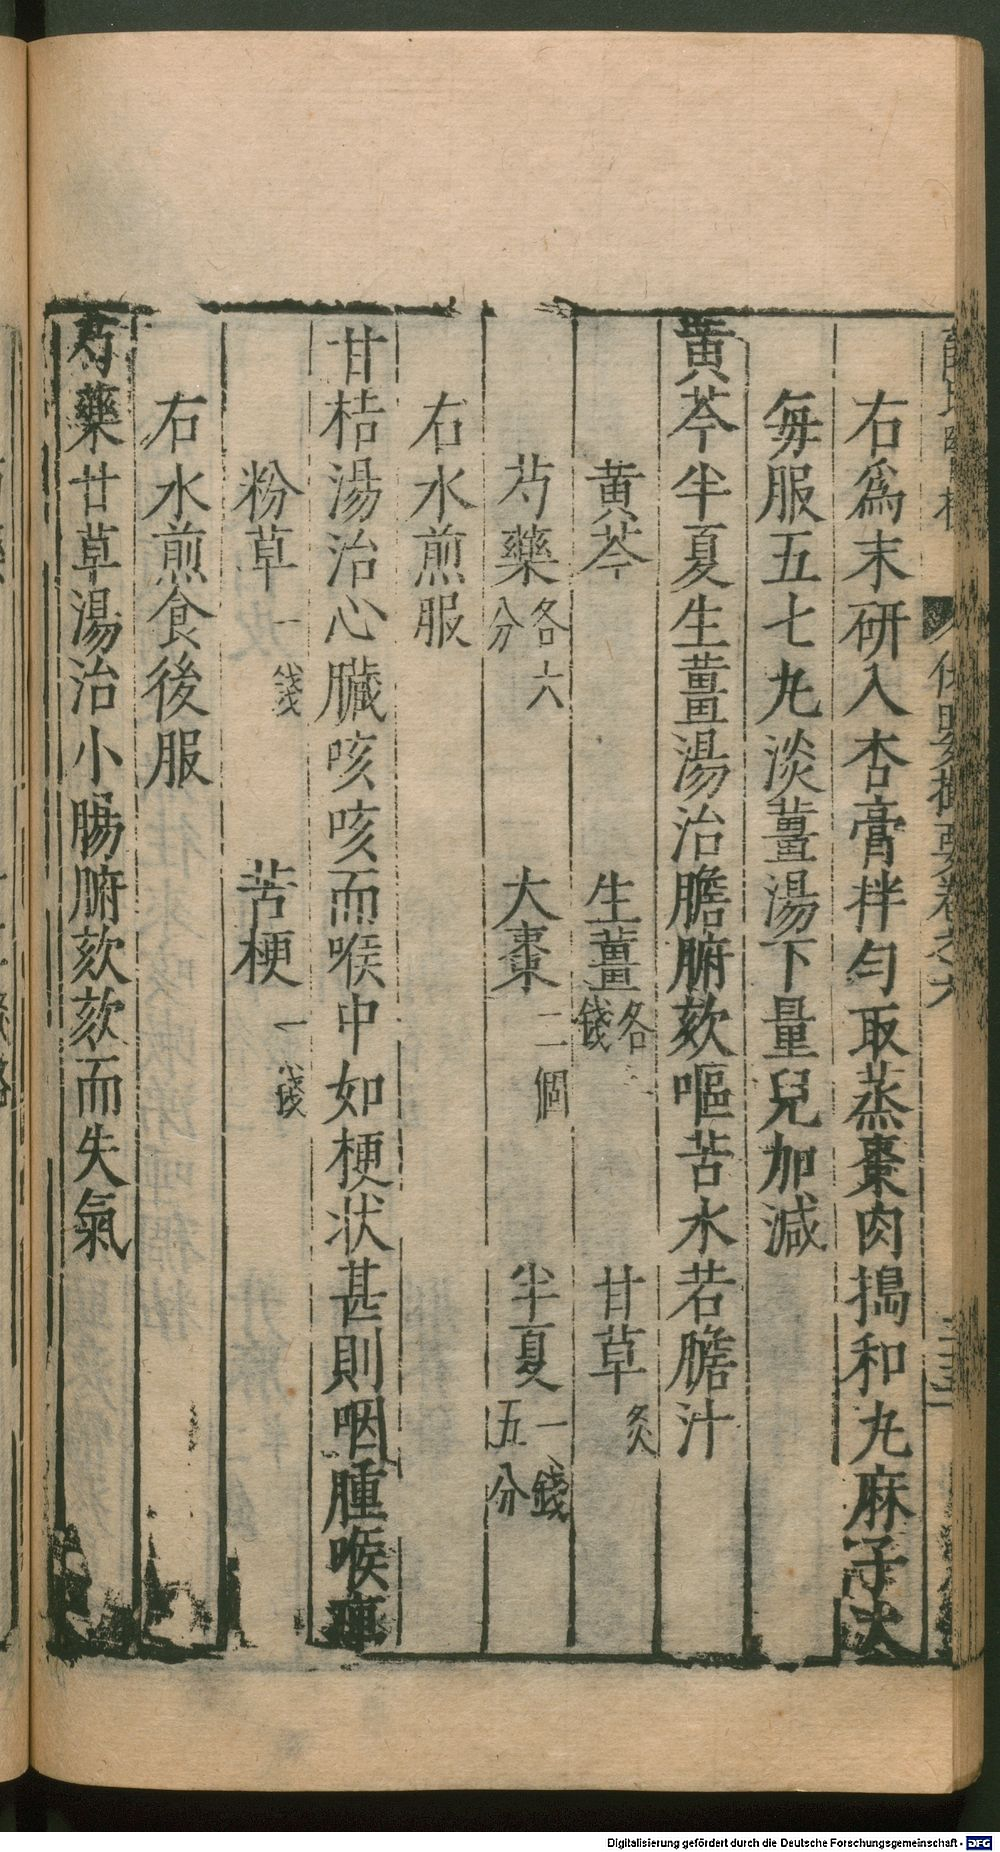 右爲末研入杏膏拌勻取蒸棗肉搗和丸麻子大
每服五七丸淡薑湯下量兒加減
黃芩半夏生薑湯治膽腑欬嘔苦水若膽汁
黃芩 生薑各錢 甘草炙
芍藥各六分 大棗二個 半夏一錢五分
右水煎服
甘桔湯治心臟咳咳而喉中如梗状甚則咽腫喉痺
粉草一錢 苦梗一錢
右水煎食後服
芍藥甘草湯治小腸腑欬欬而失氣
保嬰撮要卷之六
Digitalisierung gefördert durch die Deutsche Forschungsgemeinschaft - DFG